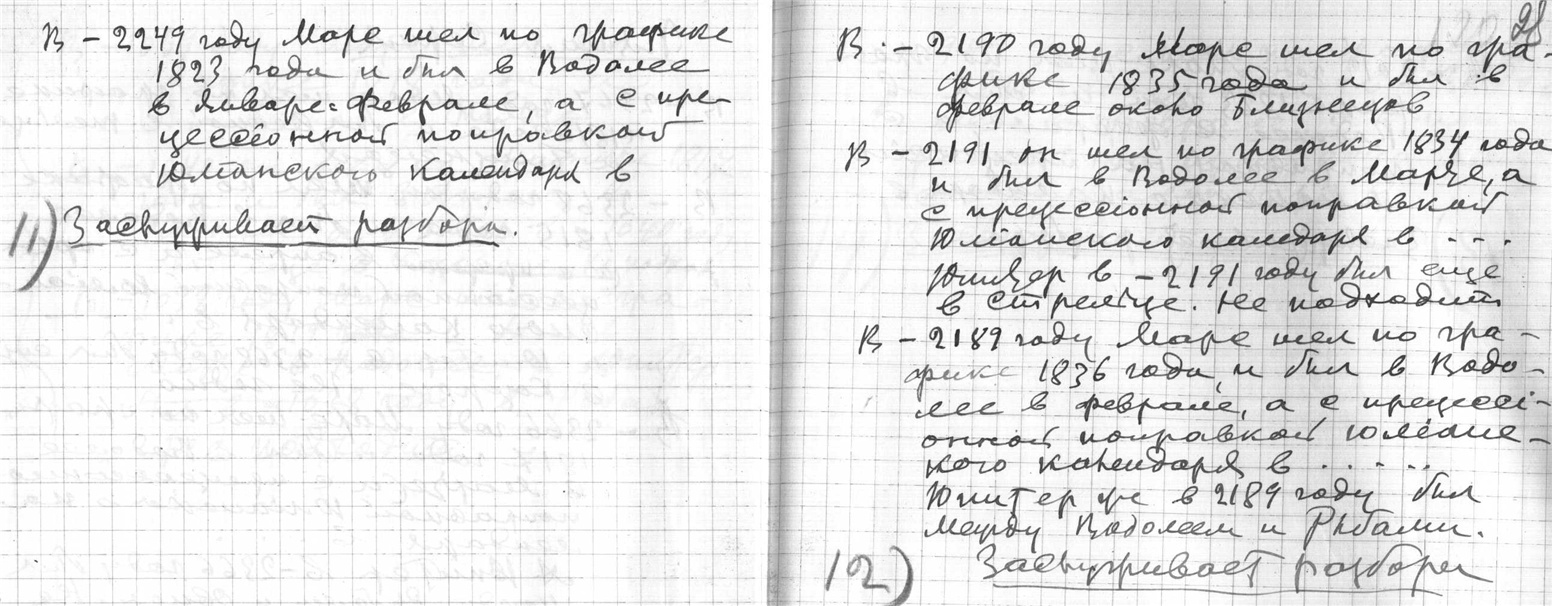 В – 2249 году Марс шел по графике
1823 года и был в Водолее
в Январе-Феврале, а с пре-
цессіонной поправкой
Юліанского календаря в
11) Заслуживает разбора.
28
В – 2190 году Марс шел по гра-
фике 1835 года и был в
феврале около Близнецов
В – 2191 он шел по графике 1834 года
и был в Водолее в Марте, а
с прецессіонной поправкой
Юліанского каледаря в ...
Юпитер в – 2191 году был еще
в Стрельце. Не подходит
В – 2189 году Марс шел по гра-
фике 1836 года, и был в Водо-
лее в феврале, а с прецессі-
онной поправкой юлианс-
кого календаря в .....
Юпитер же в 2189 году был
между Водолеем и Рыбами.
12) Заслуживает разбора